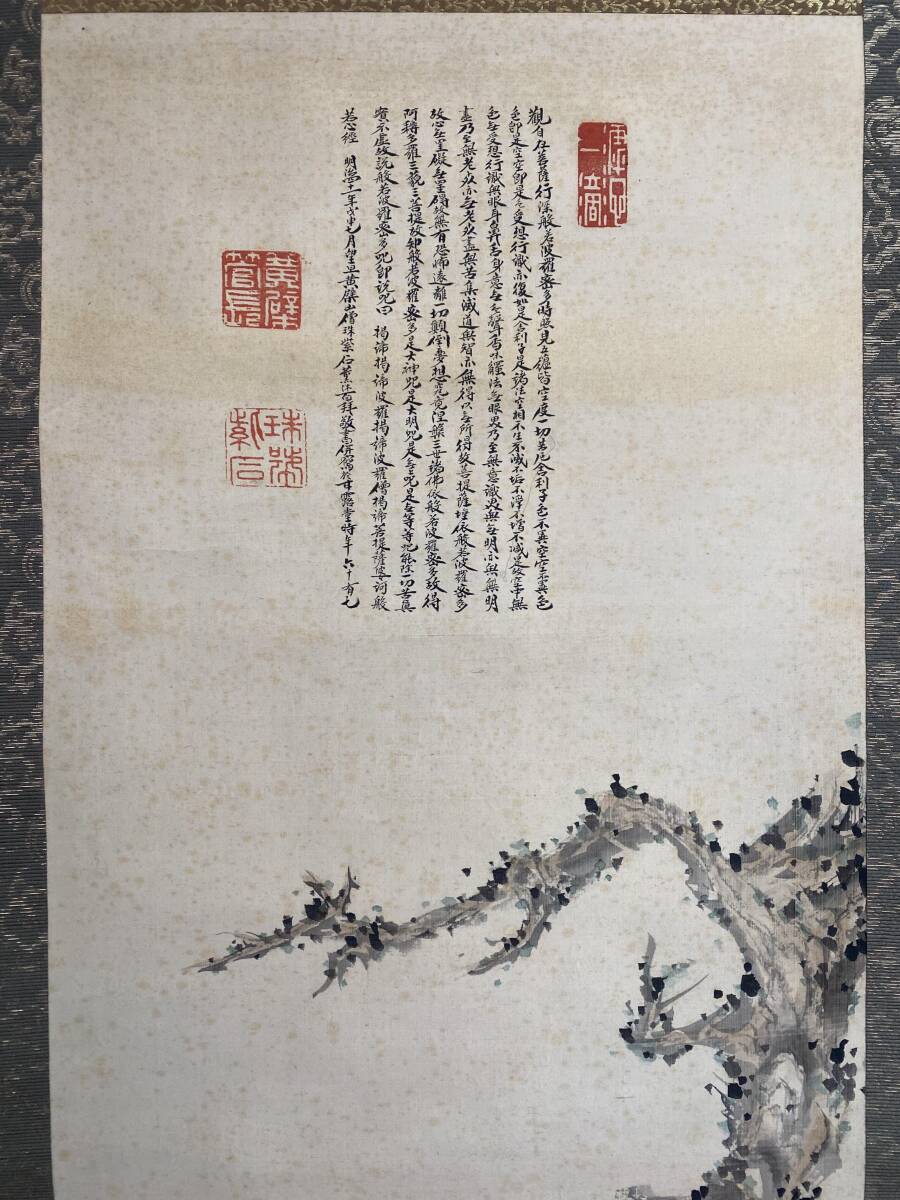 觀自在菩薩行深般若波羅蜜多時照見五蘊皆空度一切苦厄舍利子色不異空空不異色
色即是空空即是色受想行識亦復如是舍利子是諸法空相不生不滅不垢不淨不增不減是故空中無
色无受想行識無眼耳鼻舌身意无色聲香味觸法无眼界乃至無意識界無无明亦無無明
盡乃至無老死亦无老死盡無苦集滅道無智亦無得以无所得故菩提薩埵依般若波羅蜜多
故心无罣礙无罣礙故無有恐怖遠離一切顛倒夢想究竟涅槃三世諸佛依般若波羅蜜多故得
阿耨多羅三藐三菩提故知般若波羅蜜多是大神咒是大明咒是无上咒是无等等咒能除一切苦真
實不虛故說般若波羅蜜多咒即說咒曰 揭諦揭諦波羅揭諦波羅僧揭諦菩提薩婆訶般
若心經 明治十一年七月望旦黃檗山僧珠紫石百拜敬書於甘露堂時年六十有七
黃檗
管長
珠
紫石